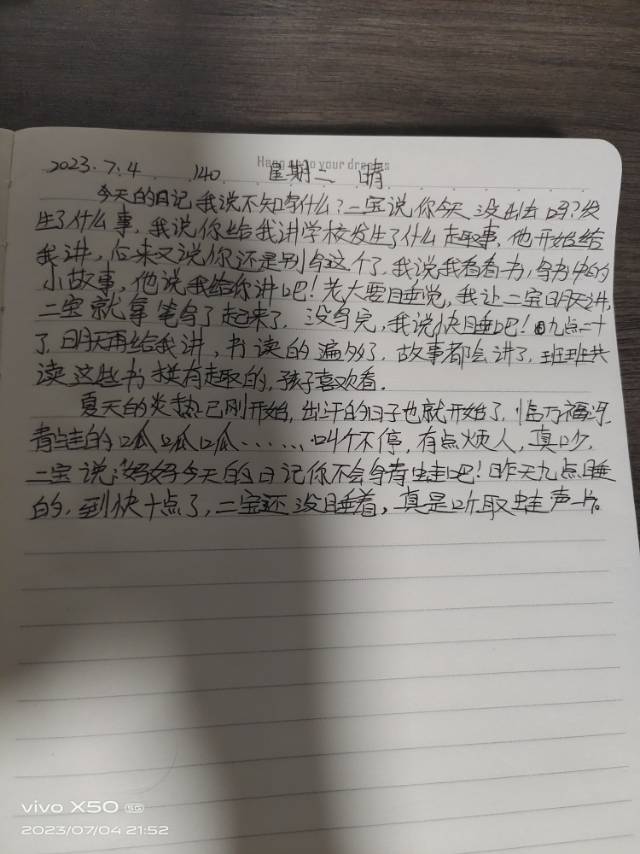 Hang on to your dreams
2023.7.4 140 星期二 晴
今天的日记我说不知写什么?二宝说你今天没出去吗?发
生了什么事,我说你给我讲学校发生了什么趣事,他开始给
我讲,后来又说你还是别写这个了,我说我看看书,写书中的
小故事,他说我给你讲吧!老大要睡觉,我让二宝明天讲,
二宝就拿笔写了起来了,没写完,我说快睡吧!九点二十
了,明天再给我讲,书读的遍多了,故事都会讲了,班班共
读这些书挺有趣的,孩子喜欢看。
夏天的炎热已刚开始,出汗的日子也就开始了,
青蛙的呱呱呱……,叫个不停,有点烦人,真吵,
二宝说:妈妈今天的日记你不会写青蛙吧!昨天九点睡
的,到快十点了,二宝还没睡着,真是听取蛙声一片。
vivo X50 5G
2023/07/04 21:52